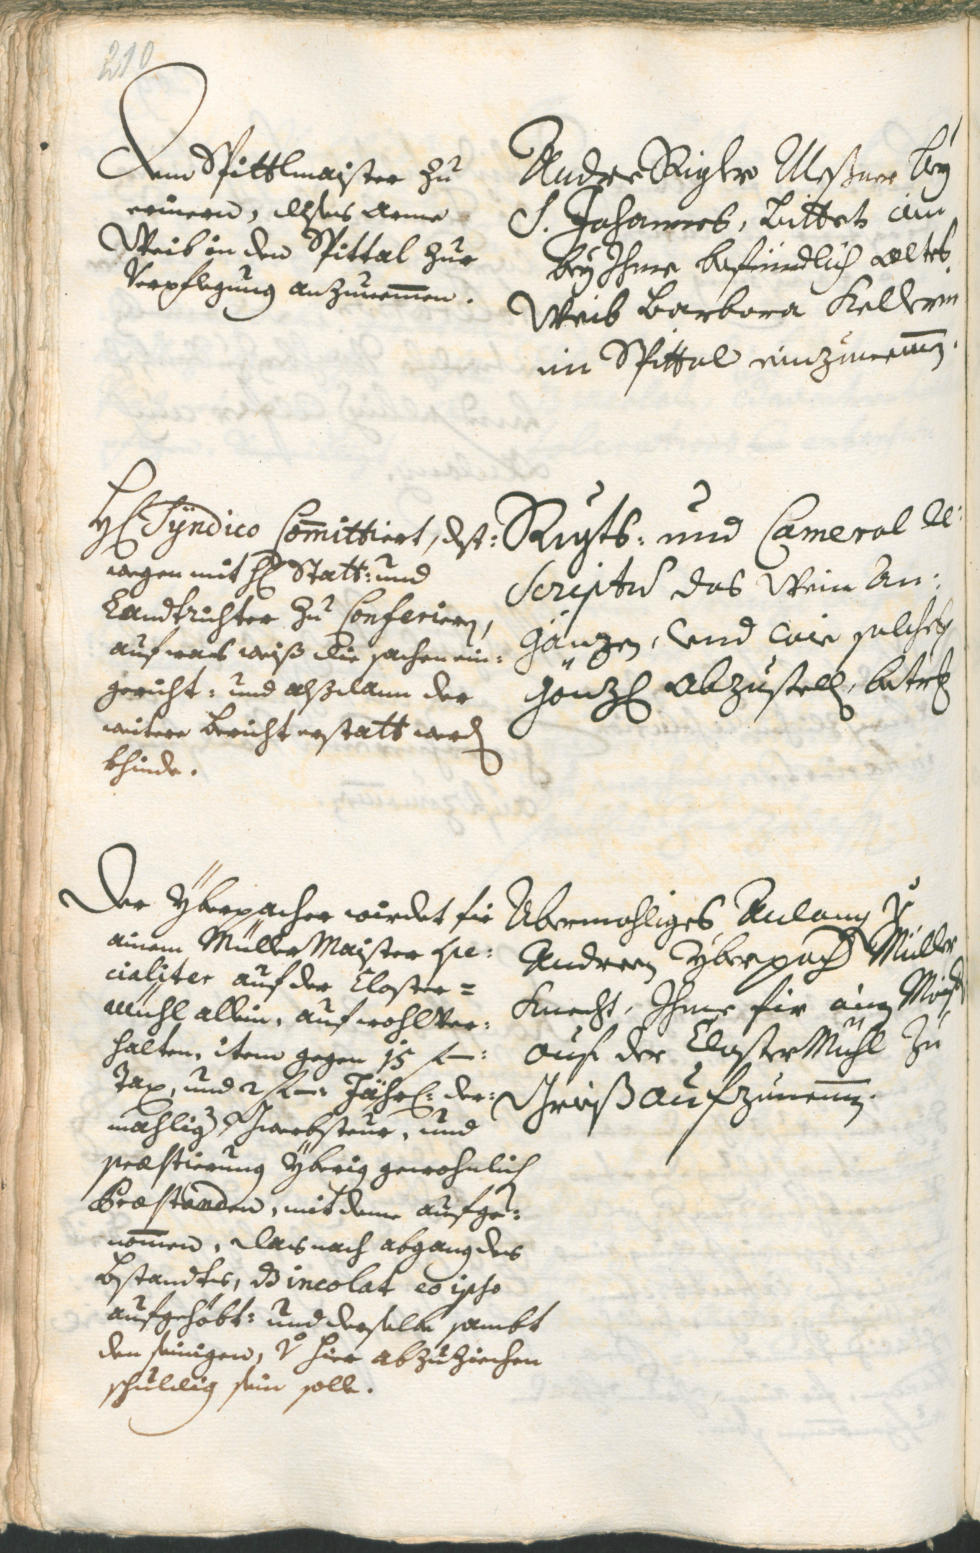 210
Dem Spittlmaister zu
erinern, dises arme
Weib in den Spittal zur
Verpflegung anzunemmen.
Andree Rigler Meßner bey
S. Johannes, bittet ain
bey Ihme befündlich altes
Weib Barbara Kellerin
in Spittal einzunemen.
H: Syndico Committiert, dest:
wegen mit H: Statt: und
Landtrichter zu Conferiern,
auf was weiß die sachen ein:
gericht: und alßdann der
weitere bericht erstatt werden
khinde.
Regts: und Cameral Re:
scriptum das Wein An:
gänzen, und wie solches
gänzl: abzustellen, betref
Der Yberpacher wirdet fir
ainem Müller Maister spe:
cialiter auf der Closter=
mühl allein, auf wohlver:
halten, item gegen 15 f:
Tax, und 2 f: Jährl: der:
mahlig Gwerbsteur, und
præstierung yberig gewohnlich
Præstanden, mit deme aufge:
nommen, das nach abgang des
bstandts, das incolat eo ipso
aufgehöbt: und derselbe sambt
den seinigen, von hier abzuziechen
schuldig sein solle.
Abermahliges Anlang
Andreen Yberpacher Müller
Knecht, Ihme fir ain Maister
auf der Closter Mühl zu
Grieß aufzunemen.